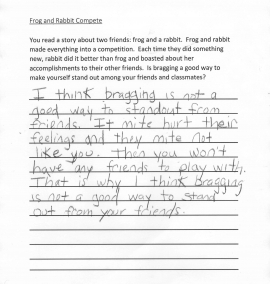 Frog and Rabbit Compete
You read a story about two friends: frog and a rabbit. Frog and rabbit
made everything into a competition. Each time they did something
new, rabbit did it better than frog and boasted about her
accomplishments to their other friends. Is bragging a good way to
make yourself stand out among your friends and classmates?
I think bragging is not a
good way to standout from
friends. It mite hurt their
feelings and they mite not
like you. Then you won't
have any friends to play with.
That is why I think Bragging
is not a good way to stand
out from your friends.